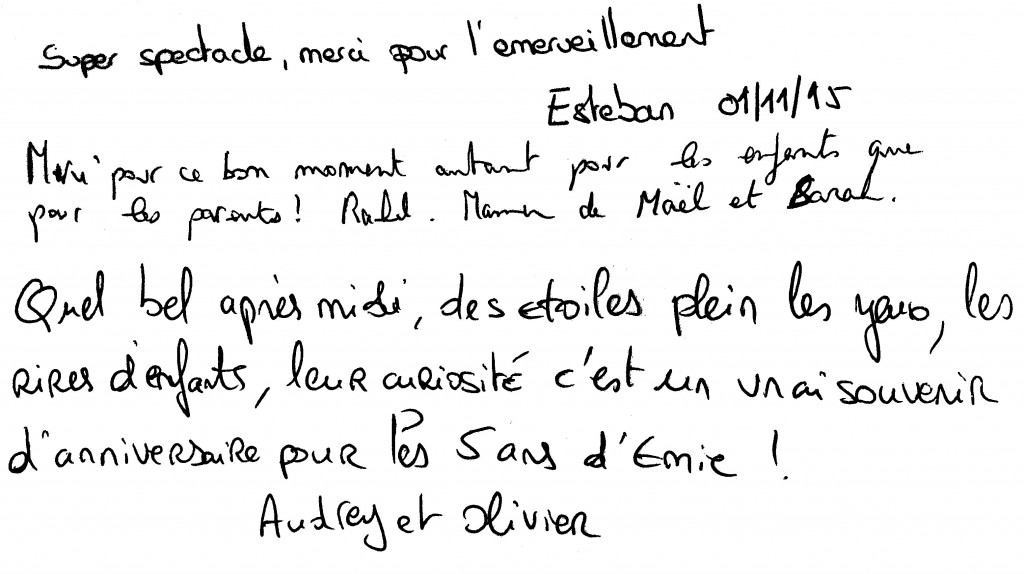 Super spectacle, merci pour l'emerveillement
Esteban 01/11/15
Merci pour ce bon moment autant pour les enfants que
pour les parents! Maman de Maël et Sarah.
Quel bel après midi, des etoiles plein les yeux, les
rires d'enfants, leur curiosité c'est un vrai souvenir
d'anniversaire pour les 5 ans d'Emie !
Audrey et Olivier